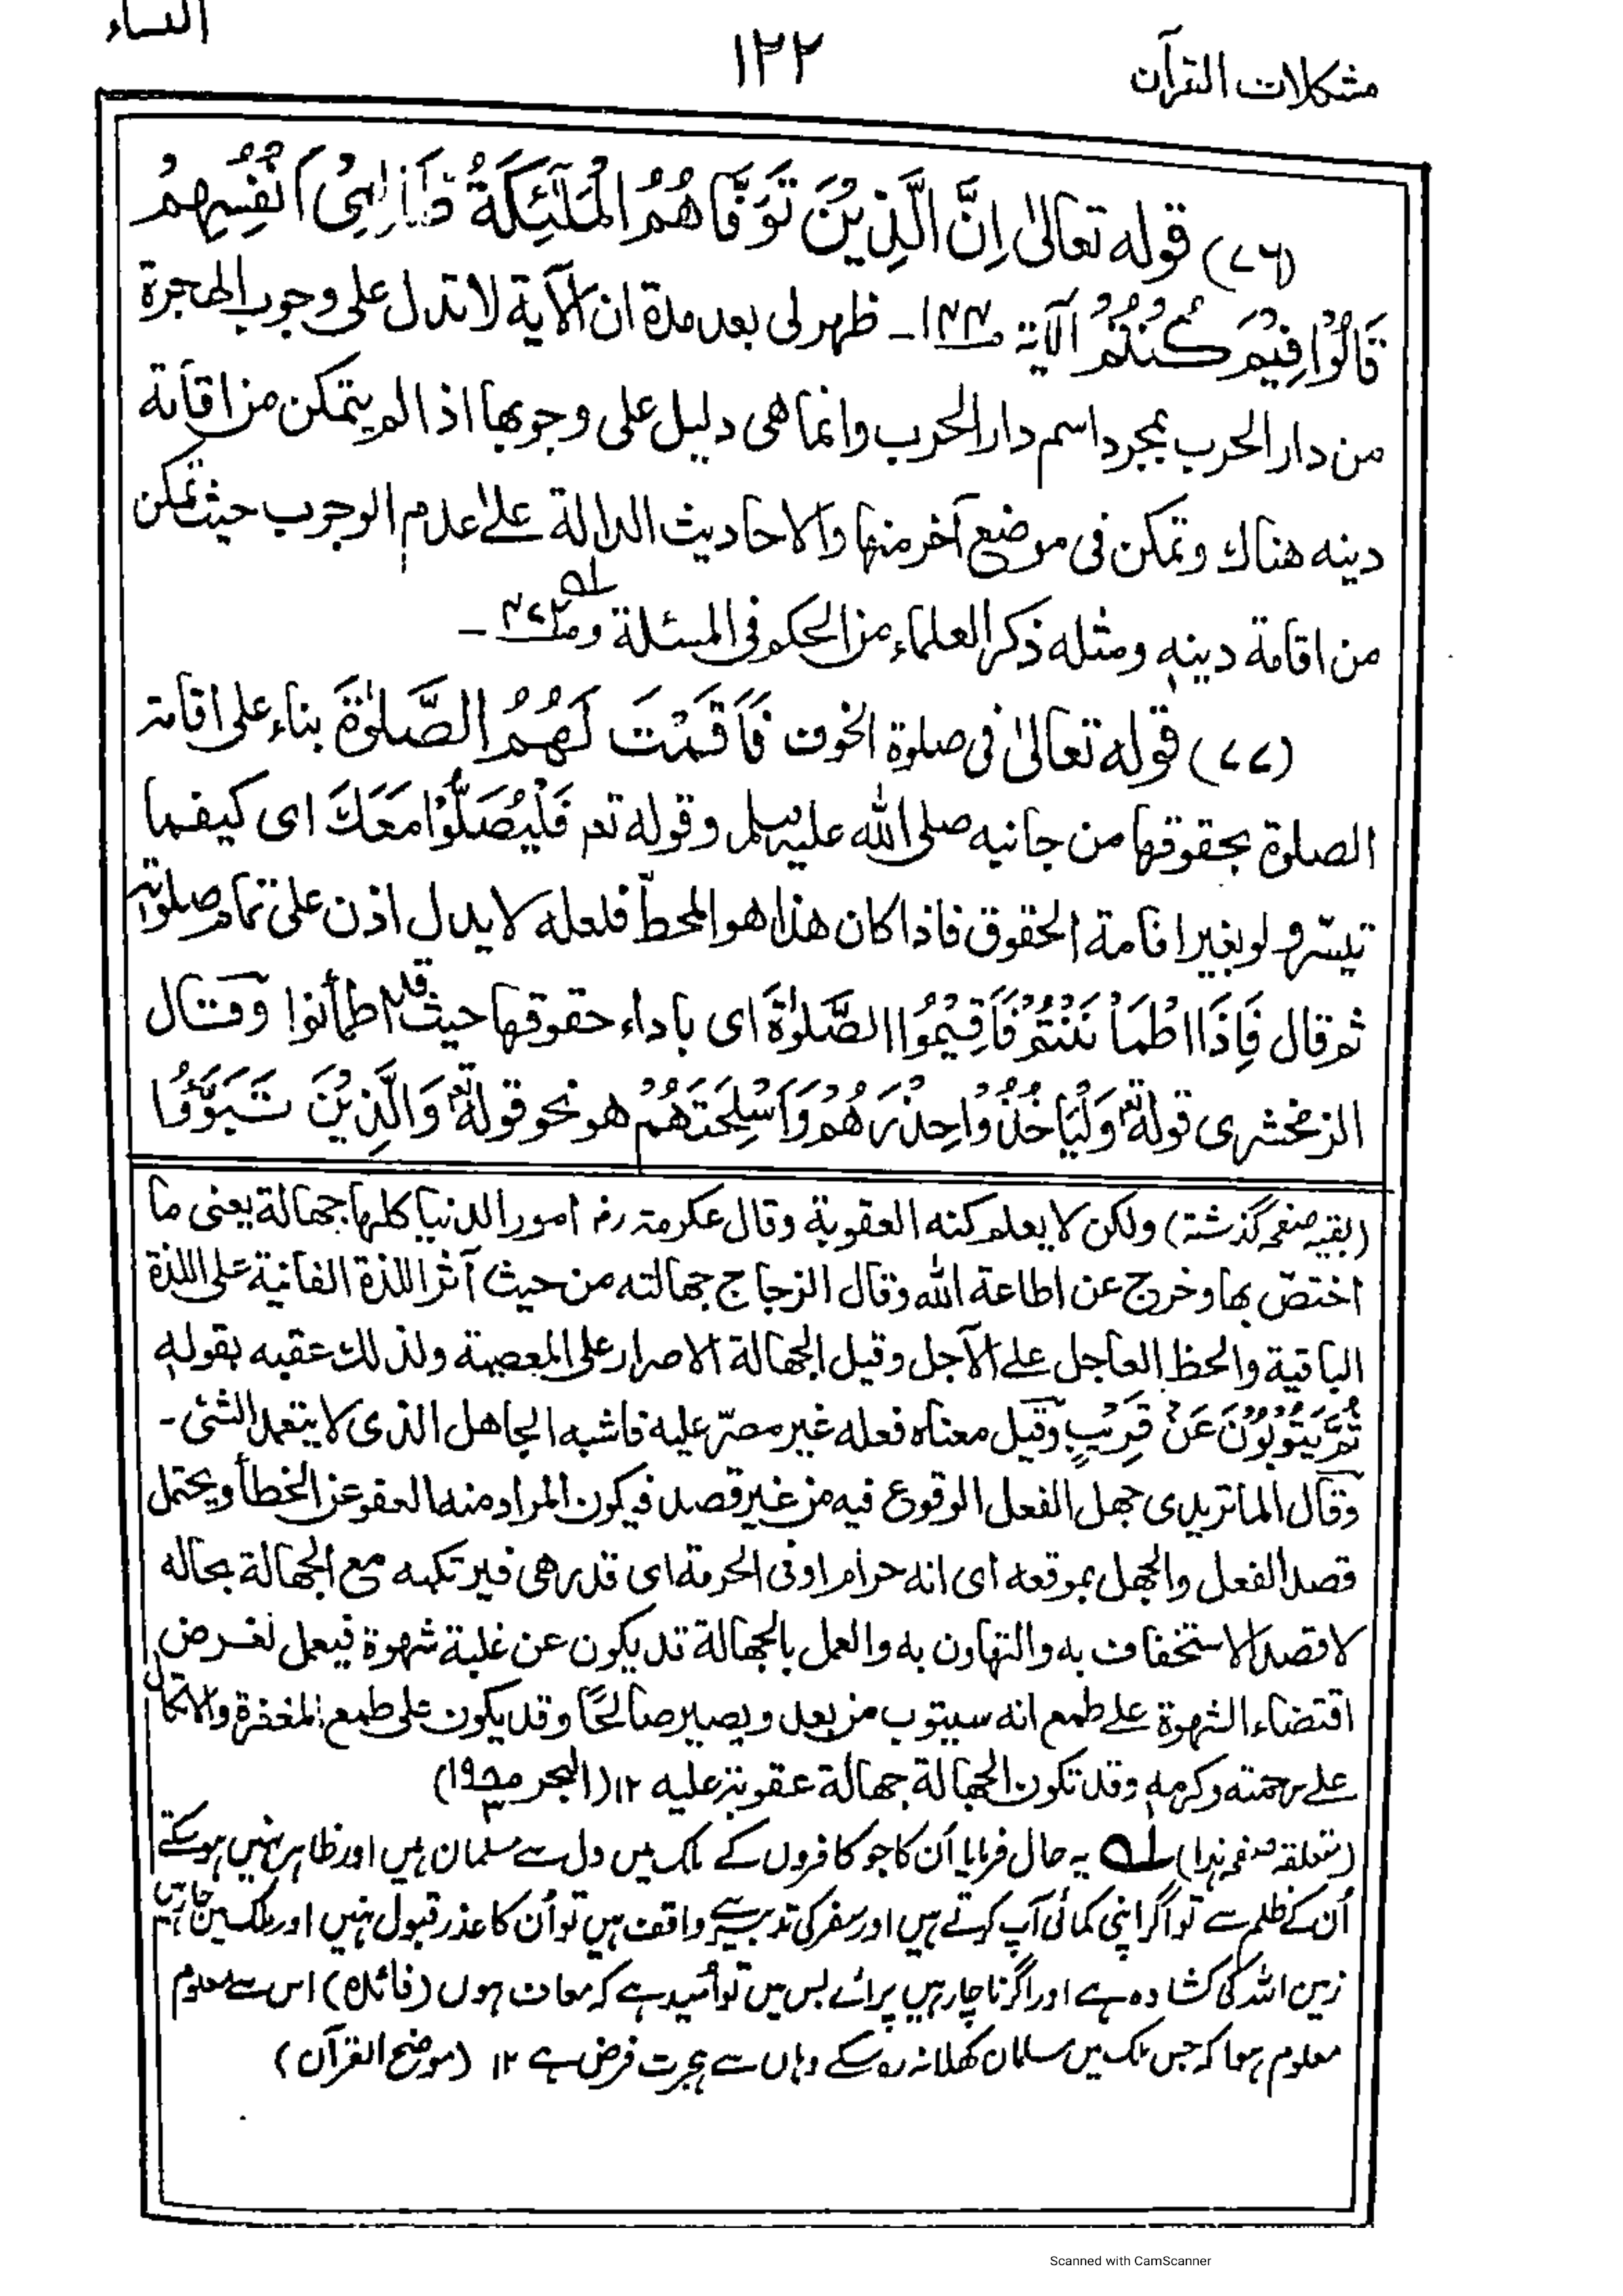 النساء
۱۲۲
مشكلات القرآن
(۷۶) قوله تعالىٰ اِنَّ الَّذِيْنَ تَوَفَّاهُمُ الْمَلٰٓئِكَةُ ظَالِمِىْ اَنْفُسِهِمْ
قَالُوْا فِيْمَ كُنْتُمْ الآية ۔ ظهر لى بعد مدة ان الآية لا تدل على وجوب الهجرة
من دار الحرب بمجرد اسم دار الحرب وانما هى دليل على وجوبها اذا لم يتمكن من اقامة
دينه هناك وتمكن فى موضع آخر منها والاحاديث الدالة علىٰ عدم الوجوب حيث تمكن
من اقامة دينه ومثله ذكر العلماء من الحكم فى المسئلة ۔ لہ
(۷۷) قوله تعالىٰ فى صلوة الخوف فَاَقَمْتَ لَهُمُ الصَّلٰوةَ بناء على اقامته
الصلوة بحقوقها من جانبه صلى الله عليه وسلم وقوله تعہ فَلْيُصَلُّوْا مَعَكَ اى كيفما
تيسّر ولو بغير اقامة الحقوق فاذا كان هذا هو المحطّ فلعله لا يدل اذن على تمام صلواتهم
ثم قال فَاِذَا اطْمَأْنَنْتُمْ فَاَقِيْمُوا الصَّلٰوةَ اى باداء حقوقها حيث قد اطمأنوا وقال
الزمخشرى قولهٗ وَلْيَاْخُذُوْا حِذْرَهُمْ وَاَسْلِحَتَهُمْ هو نحو قولهٗ وَالَّذِيْنَ تَبَوَّؤُا
(بقيه صفحہ گذشتہ) ولكن لا يعلم كنه العقوبة وقال عكرمة رض امور الدنيا كلها جهالة يعنى ما
اختصّ بها وخرج عن اطاعة الله وقال الزجاج جهالته من حيث آثر اللذة الفانية على اللذة
الباقية والحظ العاجل على الآجل وقيل الجهالة الاصرار على المعصية ولذلك عقبه بقوله
ثُمَّ يَتُوْبُوْنَ عَنْ قَرِيْبٍ وقيل معناه فعله غير مصرّ عليه فاشبه الجاهل الذى لا يتعمد الشئ۔
وقال الماتريدى جهل الفعل الوقوع فيه من غير قصد فيكون المراد منه العفو عن الخطأ ويحتمل
قصد الفعل والجهل بموقعه اى انه حرام او فى الحرمة اى قدر هى فيرتكبه مع الجهالة بحاله
لا قصد الاستخفاف به والتهاون به والعمل بالجهالة قد يكون عن غلبة شهوة فيعمل لغرض
اقتضاء الشهوة على طمع انه سيتوب من بعد ويصير صالحًا وقد يكون على طمع المغفرة والاتكال
على رحمته وكرمه وقد تكون الجهالة جهالة عقوبة عليه ۱۲ (البحر ص۱۹۸ ۳)
(متعلقہ صفحہ ہذا) لہ یہ حال فرمایا اُن کا جو کافروں کے ملک میں دل سے مسلمان ہیں اور ظاہر نہیں ہو سکتے
اُن کے ظلم سے تو اگر اپنی کمائی آپ کرتے ہیں اور سفر کی تدبیر سے واقف ہیں تو اُن کا عذر قبول نہیں اور ملک میں جا رہیں
زمین اللہ کی کشادہ ہے اور اگر ناچار ہیں پرائے بس میں تو اُمید ہے کہ معاف ہوں (فائدہ) اس سے معلوم
معلوم ہوا کہ جس ملک میں مسلمان کھلا نہ رہ سکے وہاں سے ہجرت فرض ہے ۱۲ (موضح القرآن)
Scanned with CamScanner